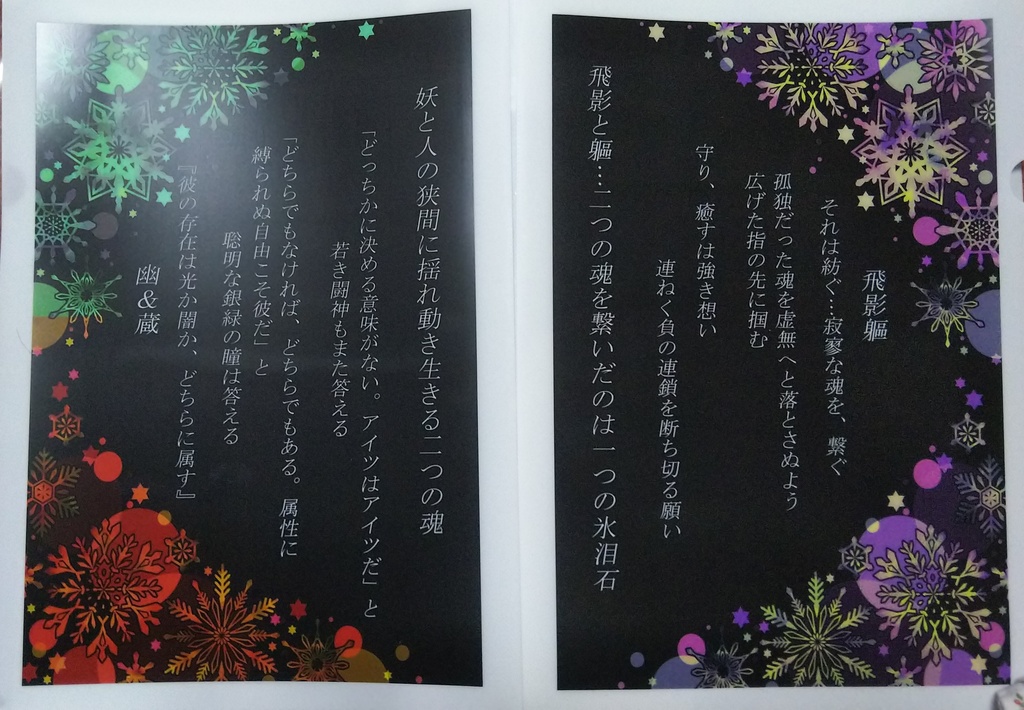 飛影軀
それは紡ぐ…寂寥な魂を、繋ぐ
孤独だった魂を虚無へと落とさぬよう
広げた指の先に掴む
守り、癒すは強き想い
連ねく負の連鎖を断ち切る願い
飛影と軀…二つの魂を繋いだのは一つの氷泪石
妖と人の狭間に揺れ動き生きる二つの魂
「どっちかに決める意味がない。アイツはアイツだ」と
若き闘神もまた答える
「どちらでもなければ、どちらでもある。属性に
縛られぬ自由こそ彼だ」と
聡明な銀緑の瞳は答える
『彼の存在は光か闇か、どちらに属す』
幽&蔵